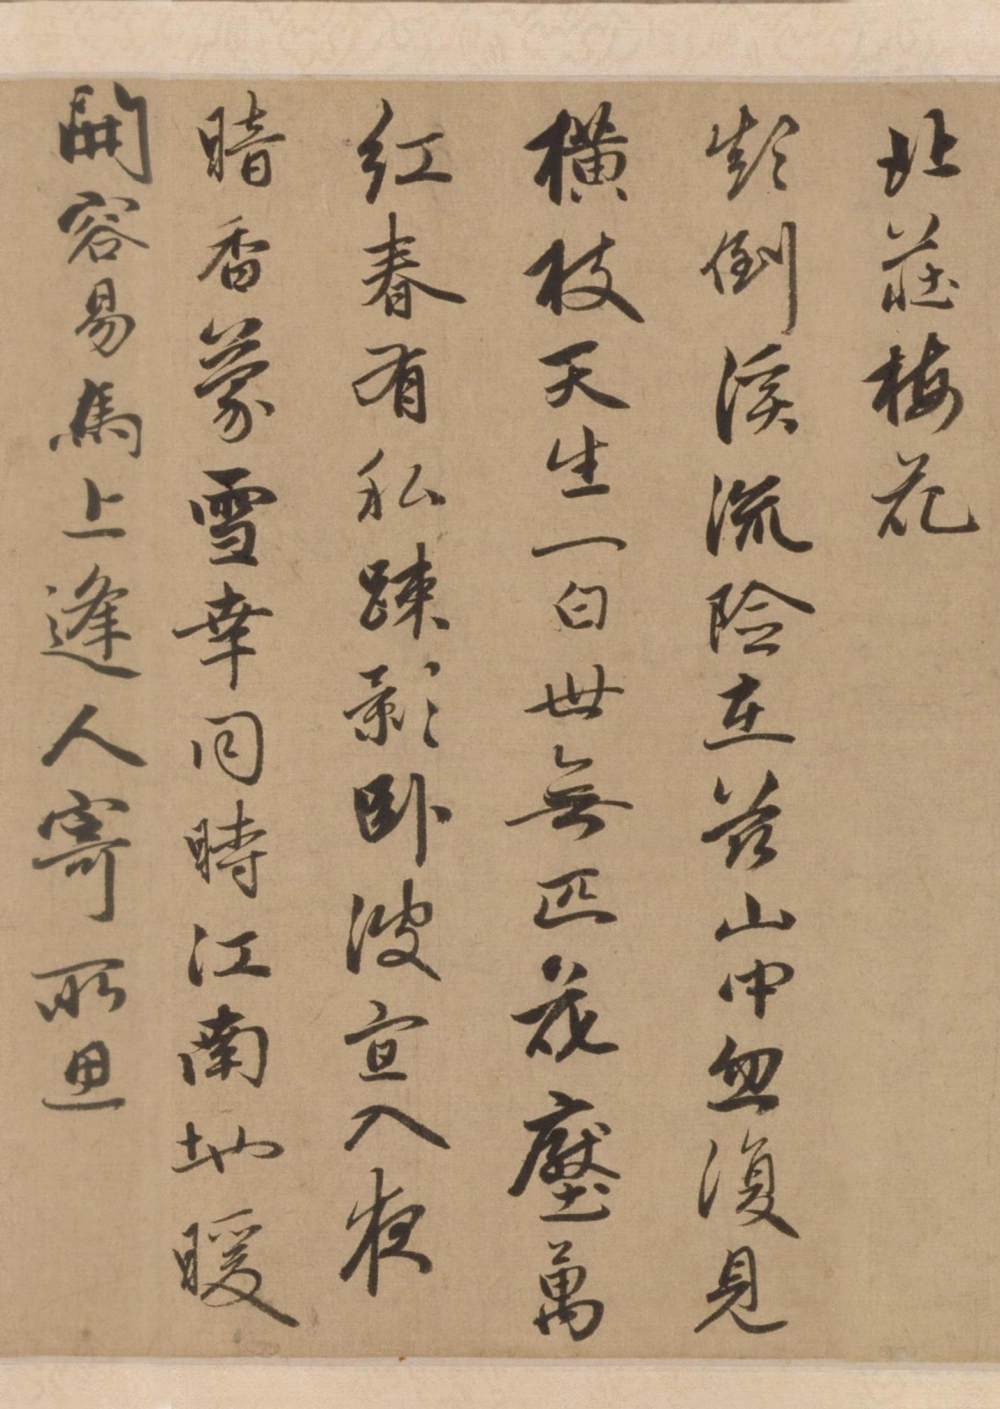 北莊梅花
欹倒溪流險在茲山中忽復見
橫枝天生一白世無匹花壓萬
紅春有私踈影卧波宜入夜
暗香蒙雪幸同時江南地暖
開容易馬上逢人寄所思